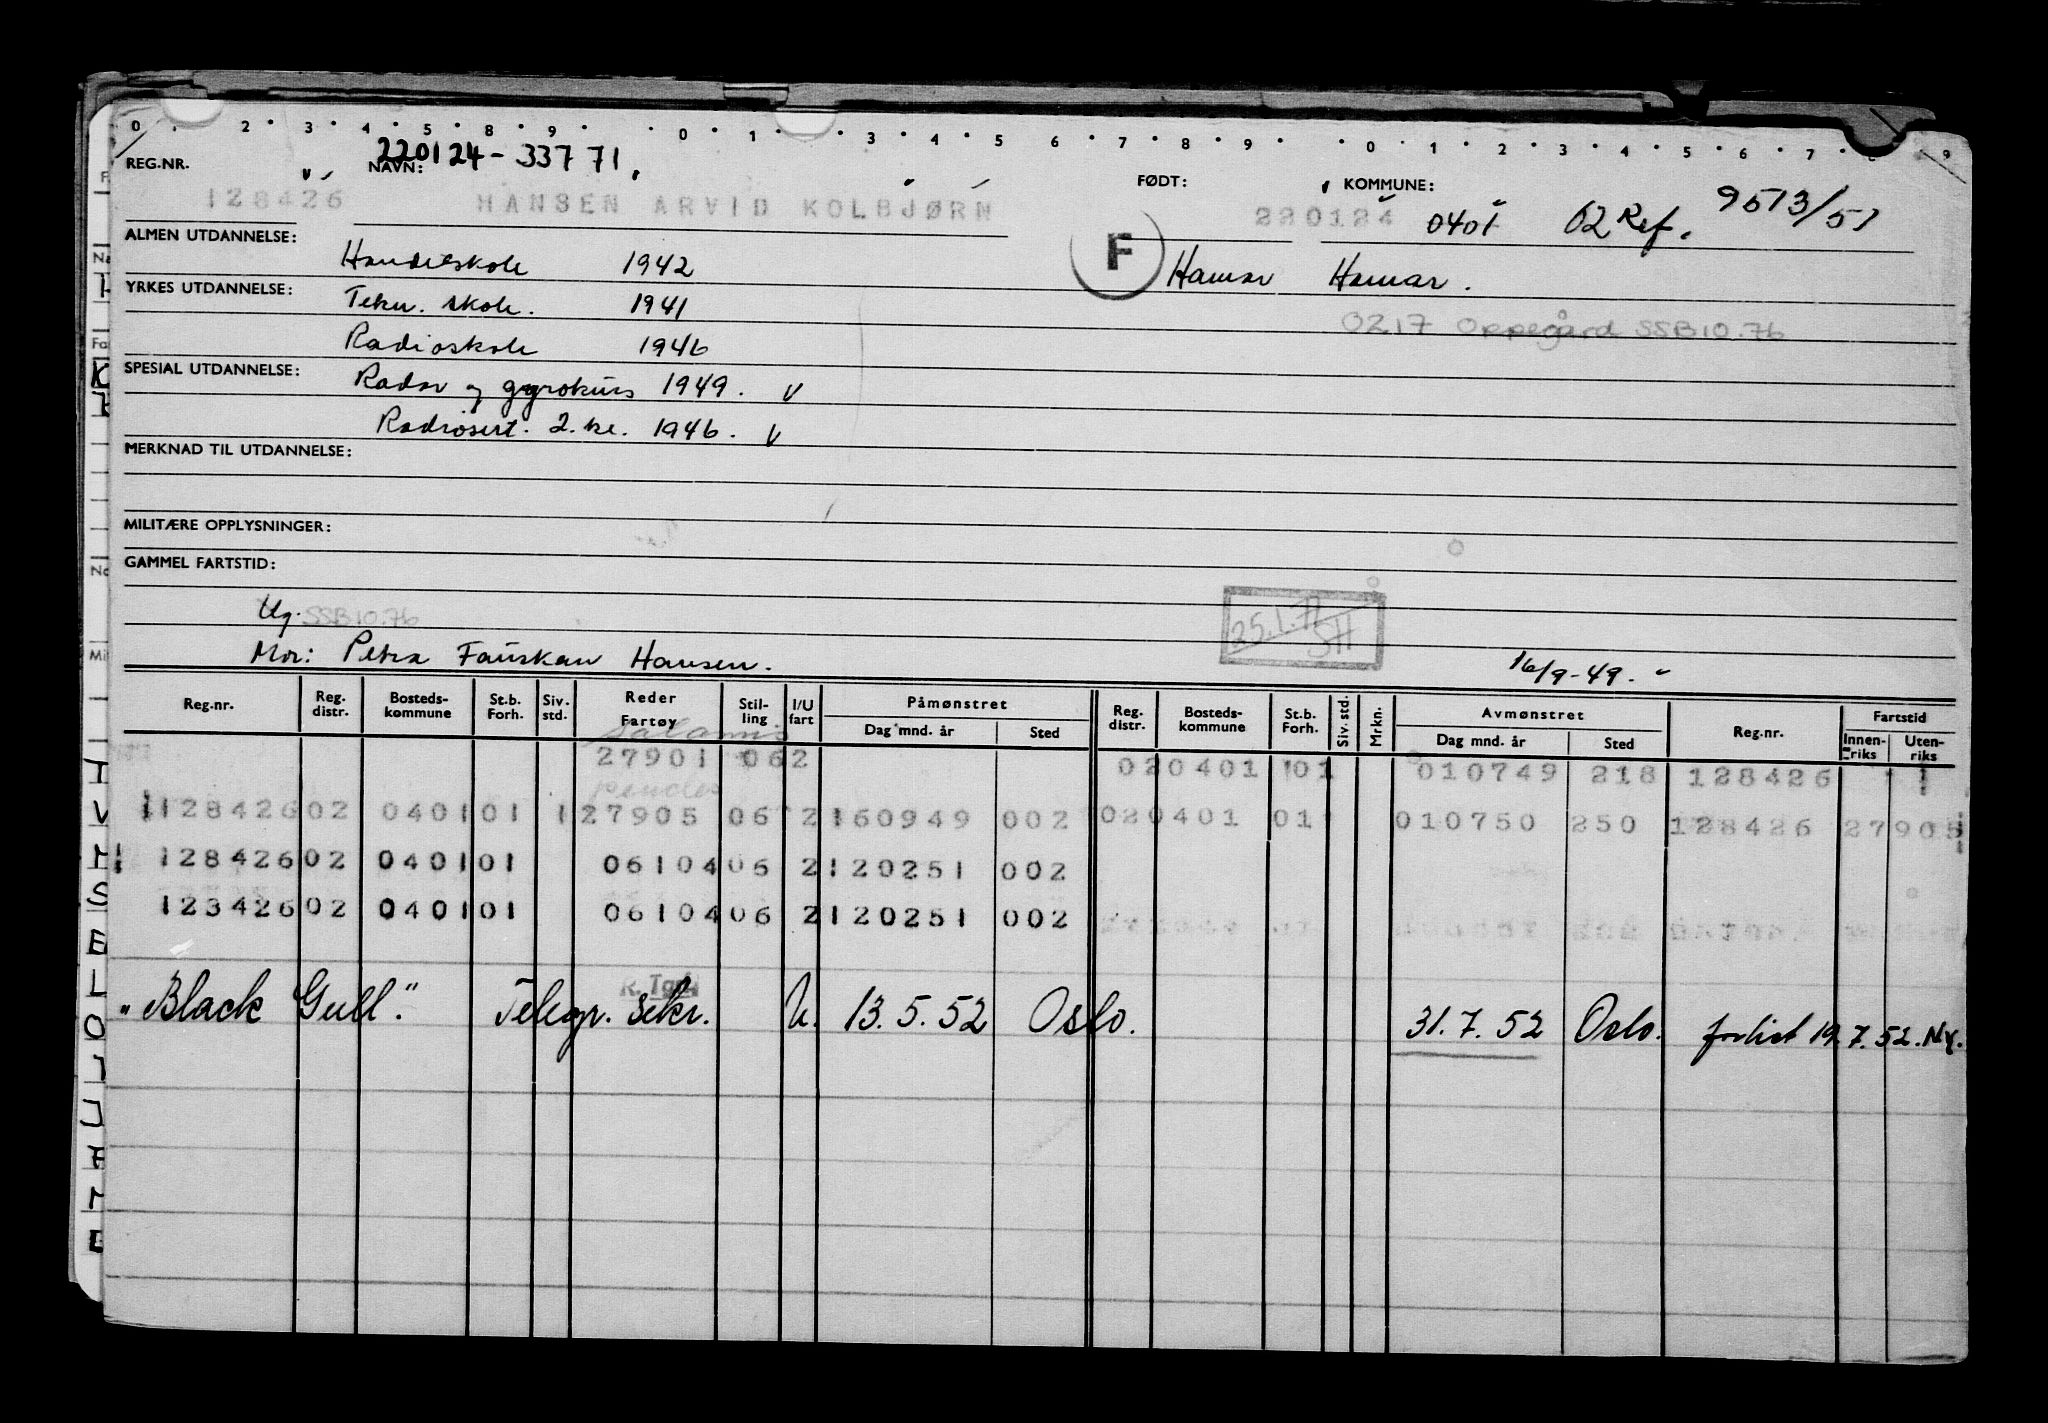 0 2 3 4 5 8 9 0 1 3 4 5 6 7 8 9 0 1 2 3 4 5 6 7 8 9
220124-33771.
REG.NR. NAVN: FØDT: KOMMUNE:
128426 HANSEN ARVID KOLBJØRN 220124 0401 02 Ref. 9513/51
ALMEN UTDANNELSE: Handelskole 1942 F Hamar Hamar.
YRKES UTDANNELSE: Tekn. skole. 1941
0217 Oppegård SSB10.76
Radioskole 1946
SPESIAL UTDANNELSE: Radar og gyrokurs 1949. V
Radiosert. 2. kl. 1946. V
MERKNAD TIL UTDANNELSE:
MILITÆRE OPPLYSNINGER:
GAMMEL FARTSTID:
Ug. SSB10.76
25.1.77 SH
Mor: Petra Fauskau Hansen.
16/9-49.
Reg.nr. Reg. distr. Bosteds-kommune St.b. Forh. Siv. std. Reder Fartøy Stil-ling I/U fart Påmønstret Dag mnd. år Sted Reg. distr. Bosteds-kommune St.b. Forh. Siv. std. Mrkn. Avmønstret Dag mnd. år Sted Reg.nr. Fartstid Innen-riks Uten-riks
Salamis
27901 06 2 02 0401 01 010749 218 128426
128426 02 0401 01 1 27905 06 2 160949 002 02 0401 01 010750 250 128426 27905
128426 02 0401 01 06104 06 2 120251 002
123426 02 0401 01 06104 06 2 120251 002
R. Tgr.
"Black Gull." Telegr. sekr. U. 13.5.52 Oslo. 31.7.52 Oslo. forlist 19.7.52. N.Y.